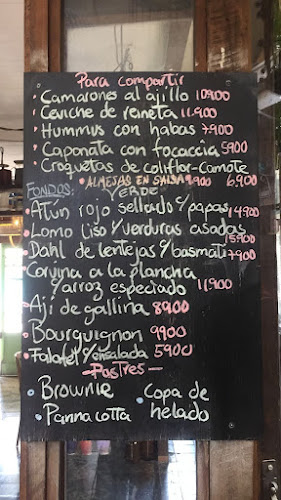 Para compartir
Camarones al ajillo 10900
Ceviche de reineta 11.900
Hummus con habas 7900
Caponata con focaccia 5900
Croquetas de coliflor-camote 6.900
• ALMEJAS EN SALSA 9.900
VERDE
FONDOS:
Atún rojo sellado c/papas 14900
Lomo Liso c/verduras asadas
15900
Dahl de lentejas c/basmati 7900
Corvina a la plancha
c/arroz especiado 11,900
Ají de gallina 8900
Bourguignon 9900
Falafel c/ensalada 5900
-Postres-
Brownie
Copa de
helado
Pannacotta